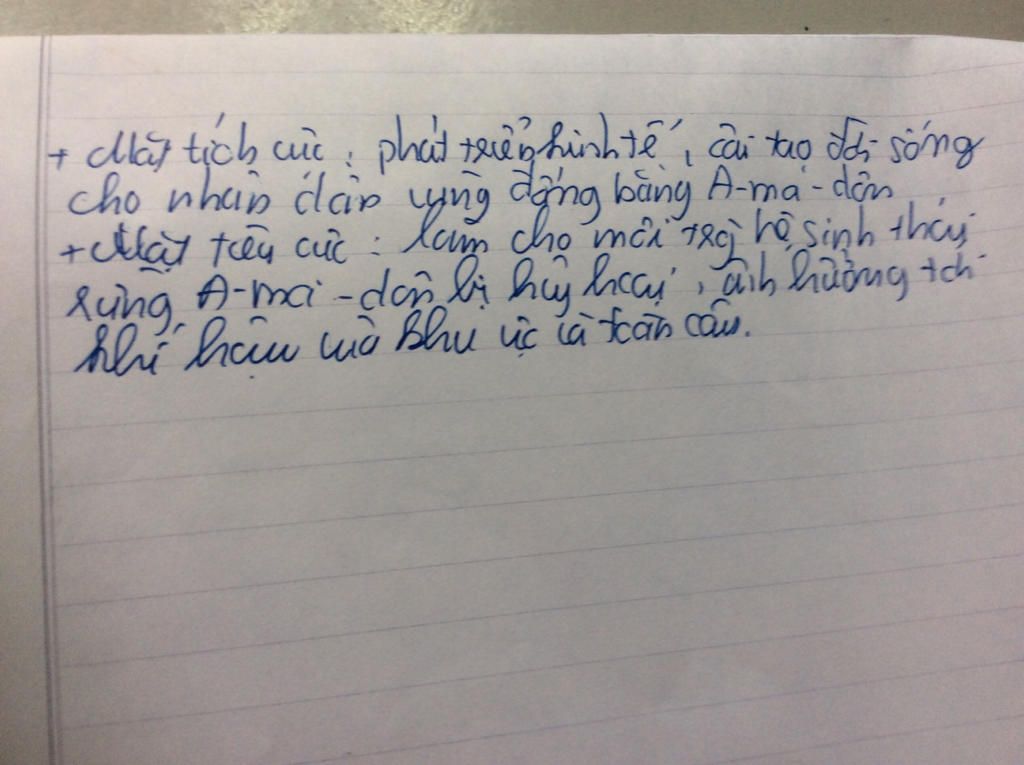 + Mặt tích cực : phát triển kinh tế, cải tạo đời sống
cho nhân dân vùng đồng bằng A-ma-dôn
+ Mặt tiêu cực : làm cho môi trg hệ sinh thái
rừng A-ma-dôn bị hủy hoại, ảnh hưởng tới
khí hậu của khu vực và toàn cầu.